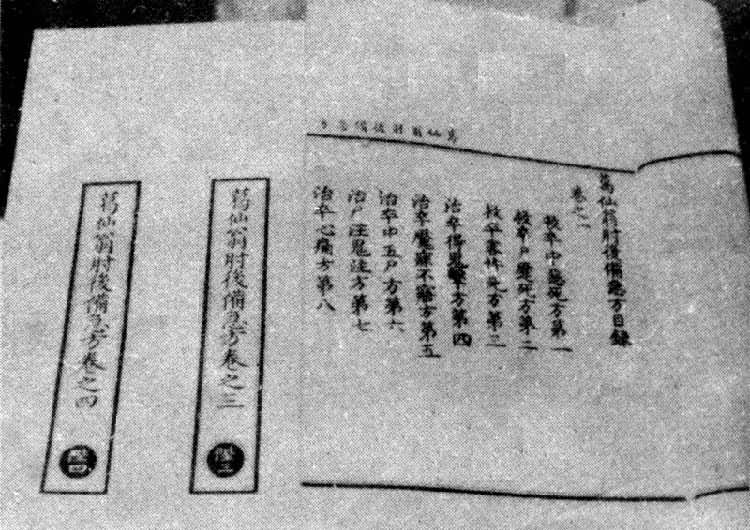 葛仙翁肘後備急方目錄
卷之一
救卒中惡死方第一
救卒尸蹷死方第二
救卒客忤死方第三
治卒得鬼擊方第四
治卒魘寐不寤方第五
治卒中五尸方第六
治尸注鬼注方第七
治卒心痛方第八
葛仙翁肘後備急方
葛仙翁肘後備急方卷之三
葛仙翁肘後備急方卷之四